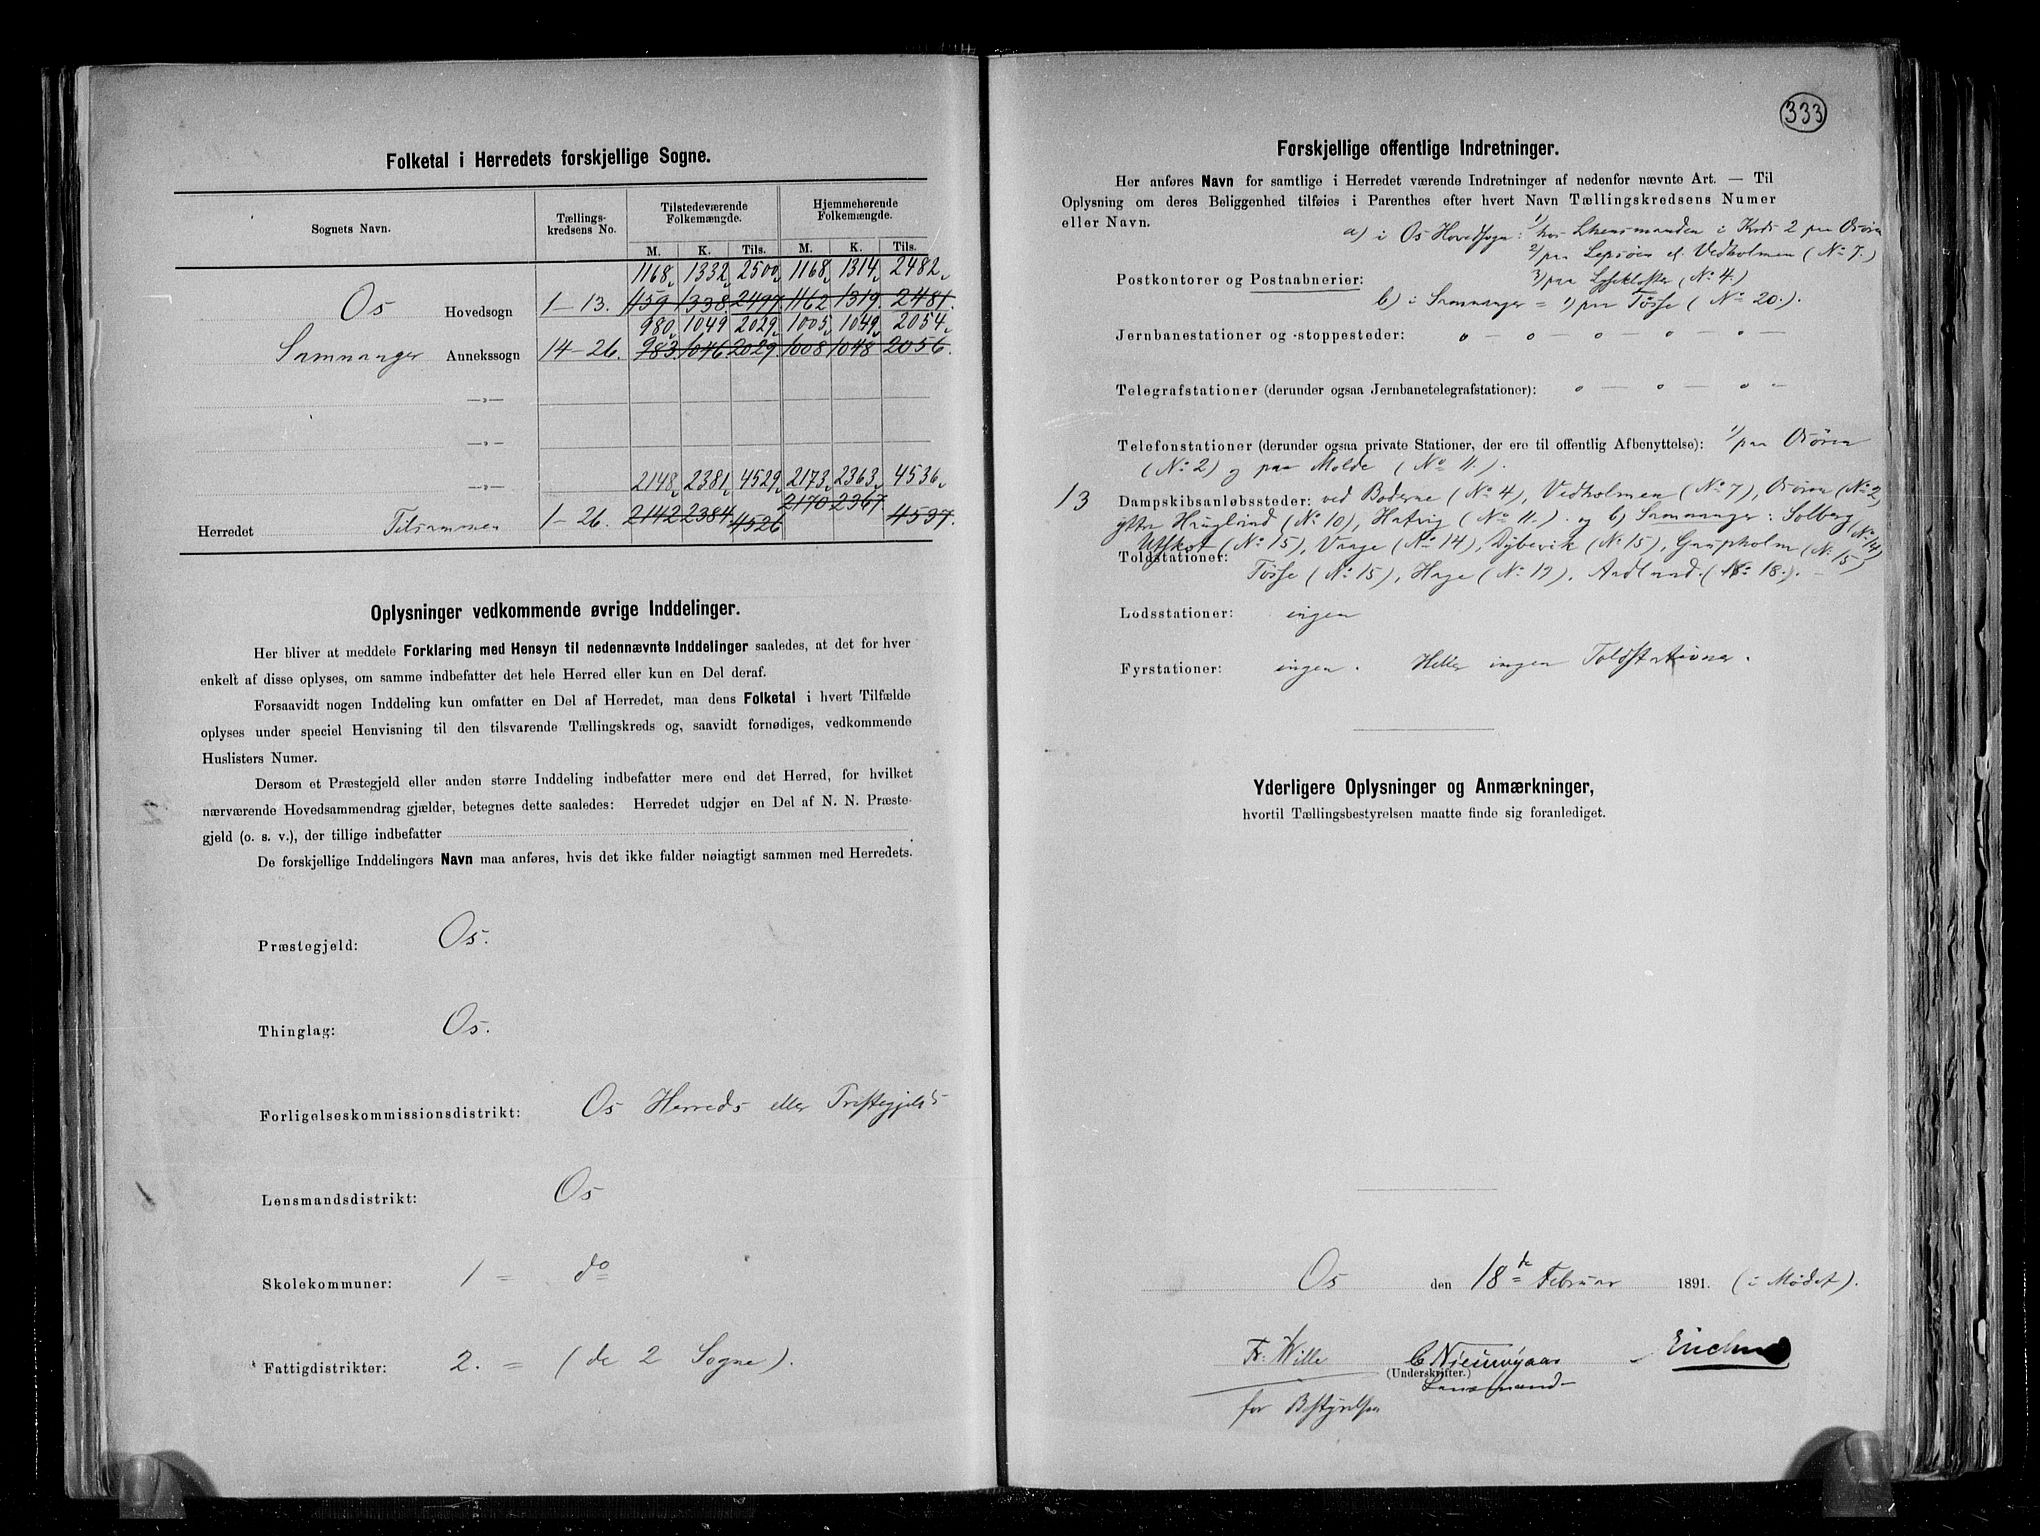 Folketal i Herredets forskjellige Sogne.
Sognets Navn. Tællings-kredsens No. Tilstedeværende Folkemængde. Hjemmehørende Folkemængde.
M. K. Tils. M. K. Tils.
1168 1332 2500 1168 1314 2482
Os Hovedsogn 1-13. 1159 1338 2497 1162 1319 2481
980 1049 2029 1005 1049 2054
Samnanger Annekssogn 14-26. 983 1046 2029 1008 1048 2056
—„—
—„—
2148 2381 4529 2173 2363 4536
—„—
Herredet Tilsammen 1-26. 2142 2384 4526 2170 2367 4537.
Oplysninger vedkommende øvrige Inddelinger.
Her bliver at meddele Forklaring med Hensyn til nedennævnte Inddelinger saaledes, at det for hver
enkelt af disse oplyses, om samme indbefatter det hele Herred eller kun en Del deraf.
Forsaavidt nogen Inddeling kun omfatter en Del af Herredet, maa dens Folketal i hvert Tilfælde
oplyses under speciel Henvisning til den tilsvarende Tællingskreds og, saavidt fornødiges, vedkommende
Huslisters Numer.
Dersom et Præstegjeld eller anden større Inddeling indbefatter mere end det Herred, for hvilket
nærværende Hovedsammendrag gjælder, betegnes dette saaledes: Herredet udgjør en Del af N. N. Præste-
gjeld (o. s. v.), der tillige indbefatter
De forskjellige Inddelingers Navn maa anføres, hvis det ikke falder nøiagtigt sammen med Herredets.
Præstegjeld: Os.
Thinglag: Os.
Forligelseskommissionsdistrikt: Os Herreds eller Præstegjelds
Lensmandsdistrikt: Os
Skolekommuner: 1 = do
Fattigdistrikter: 2. = (de 2 Sogne).
333
Forskjellige offentlige Indretninger.
Her anføres Navn for samtlige i Herredet værende Indretninger af nedenfor nævnte Art. — Til
Oplysning om deres Beliggenhed tilføies i Parenthes efter hvert Navn Tællingskredsens Numer
eller Navn.
a) i Os Hovedsogn: 1/ hos Lhensmanden i Kreds 2 paa Osören
2/ paa Lepsöen el. Vedholmen (No 7.)
3/ paa Lysekloster (No 4.)
Postkontorer og Postaabnerier:
b) i Samnanger = 1) paa Tösse (No 20.).
Jernbanestationer og -stoppesteder: „ — „ — „ — „ — „
Telegrafstationer (derunder ogsaa Jernbanetelegrafstationer): „ — „ — „ —
Telefonstationer (derunder ogsaa private Stationer, der ere til offentlig Afbenyttelse): 1/ paa Osören
(No 2) og paa Molde (No 11.).
13 Dampskibsanløbssteder: ved Boderne (No 4), Vedholmen (No 7), Osören (No 2,
ytre Haugland (No 10), Hatvig (No 11.) og b) Samnanger: Solberg (No 14)
Utskot (No 15), Vaage (No 14), Dybevik (No 15), Gaupholm (No 15)
Toldstationer:
Tösse (No 15), Hage (No 19), Aadland (No 18.).
Lodsstationer: ingen
Fyrstationer: ingen. Heller ingen Toldstationer.
Yderligere Oplysninger og Anmærkninger,
hvortil Tællingsbestyrelsen maatte finde sig foranlediget.
Os den 18de Februar 1891. (i Mødet).
Fr. Wille C Nieuwejaar
(Underskrifter.)
Lensmand
for Bestyrelsen